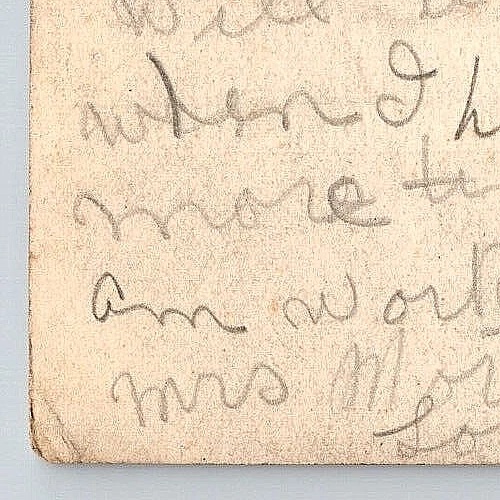 will
when I h
more
am work
Mrs Mor